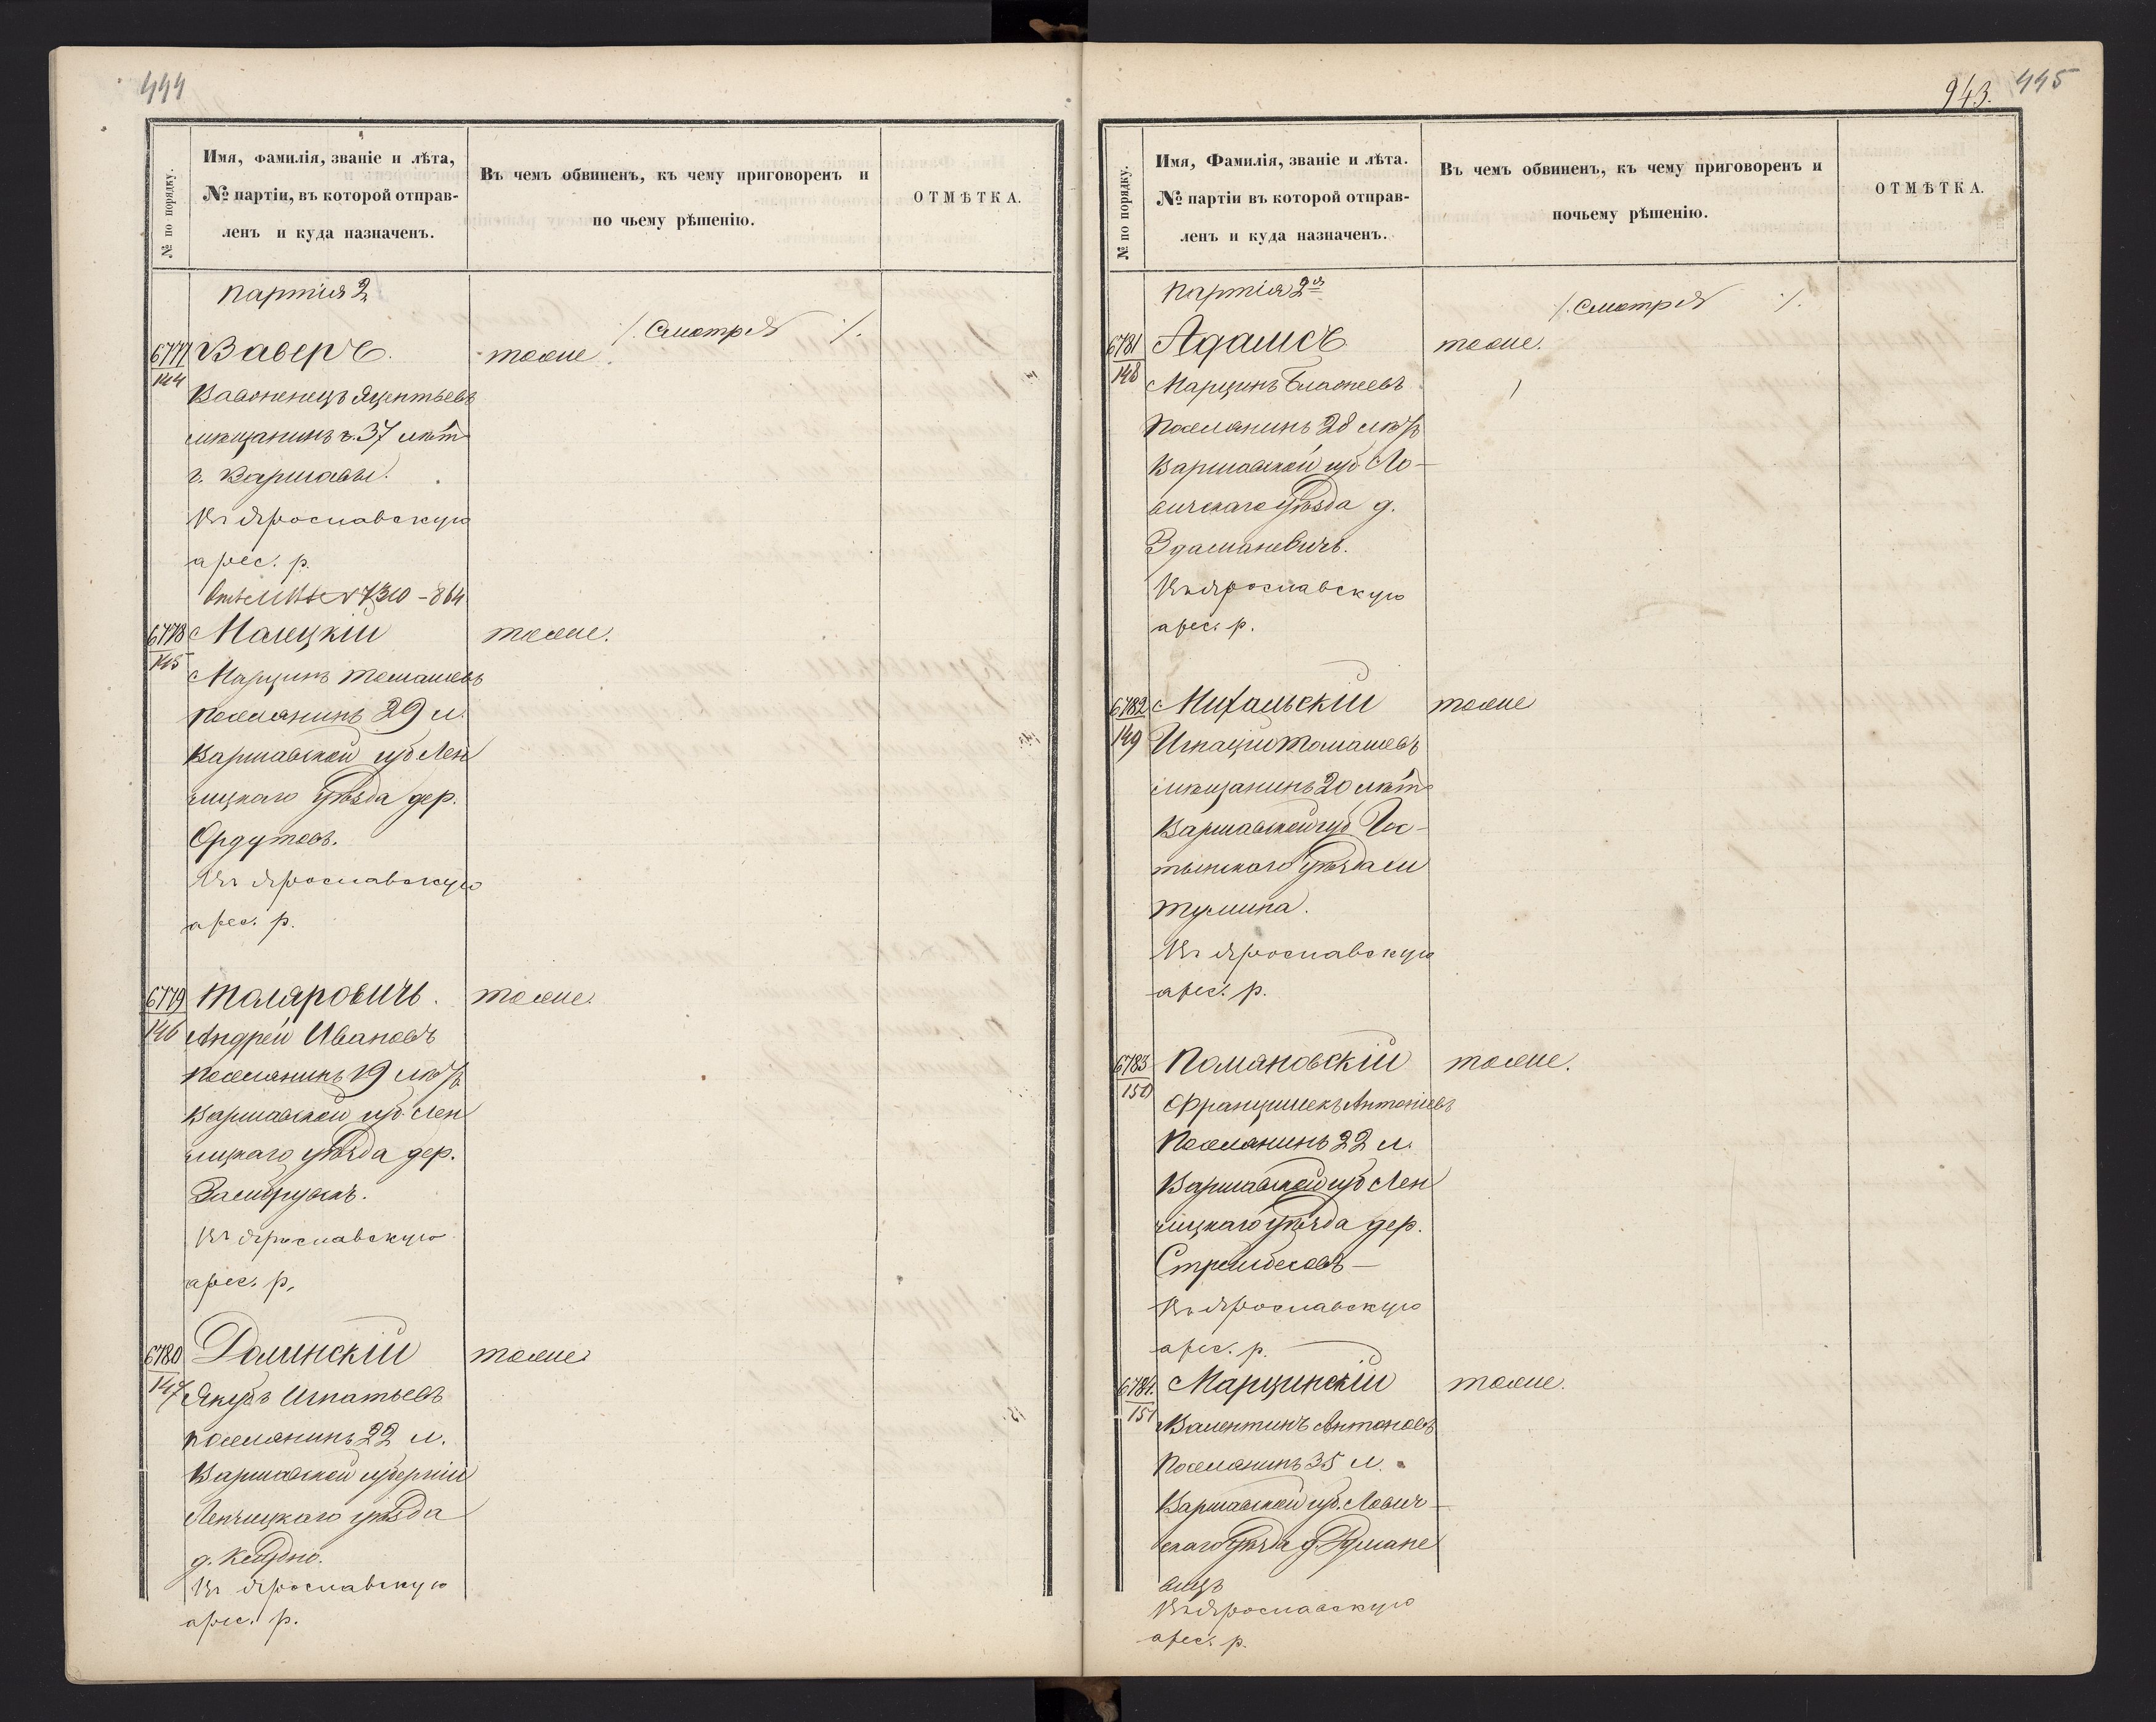 444
№ по порядку.
Имя, фамилія, званіе и лѣта,
№ партіи, въ которой отправ-
ленъ и куда назначенъ.
Въ чемъ обвиненъ, къ чему приговоренъ и
по чьему рѣшенію.
ОТМѢТКА.
Партія 2
/. Смотрѣ /.
6777/144 Ваверъ. тоже
Яцентьевъ
мѣщанинъ г. 37 лѣтъ
г. Варшавы.
Въ Ярославскую
арес. р.
№ 7310 - 864
6778/145 Малецкій тоже.
Марцинъ Томашевъ
поселянинъ 29 л.
Варшавской губ Лен
чицкаго уѣзда дер.
Ордутовъ.
Въ Ярославскую
арес. р.
6779/146 Толяровичъ. тоже.
Андрей Ивановъ
поселянинъ 19 лѣтъ
Варшавской губ. Лен
чицкаго уѣзда дер.
Въ Ярославскую
арес. р.
6780/147 Долинскій тоже
Якубъ Игнатьевъ
поселянинъ 22 л.
Варшавской губерніи
Ленчицкаго уѣзда
д.
Въ Ярославскую
арес. р.
943. 445
№ по порядку.
Имя, Фамилія, званіе и лѣта.
№ партіи въ которой отправ-
ленъ и куда назначенъ.
Въ чемъ обвиненъ, къ чему приговоренъ и
почьему рѣшенію.
ОТМѢТКА.
Партія 2я
/. Смотрѣ /.
6781/148 Адамсъ тоже.
Марцинъ Блажеевъ
Поселянинъ 28 лѣтъ
Варшавской губ. Ло-
вичскаго уѣзда д.
Здамановичъ.
Въ Ярославскую
арес. р.
6782/149 Михальскій тоже
Игнацій Томашевъ
мѣщанинъ 20 лѣтъ
Варшавской губ Гос-
тынскаго уѣзда
Въ Ярославскую
арес. р.
6783/150 Поляновскій тоже.
Францишекъ Антоніевъ
Поселянинъ 22 л.
Варшавской губ Лен
чицкаго уѣзда дер.
Въ Ярославскую
арес. р.
6784./151 Марцинскій тоже.
Валентинъ Антоновъ
Поселянинъ 35 л.
Варшавской губ. Лович-
скаго уѣзда д.
Въ Ярославскую
арес. р.